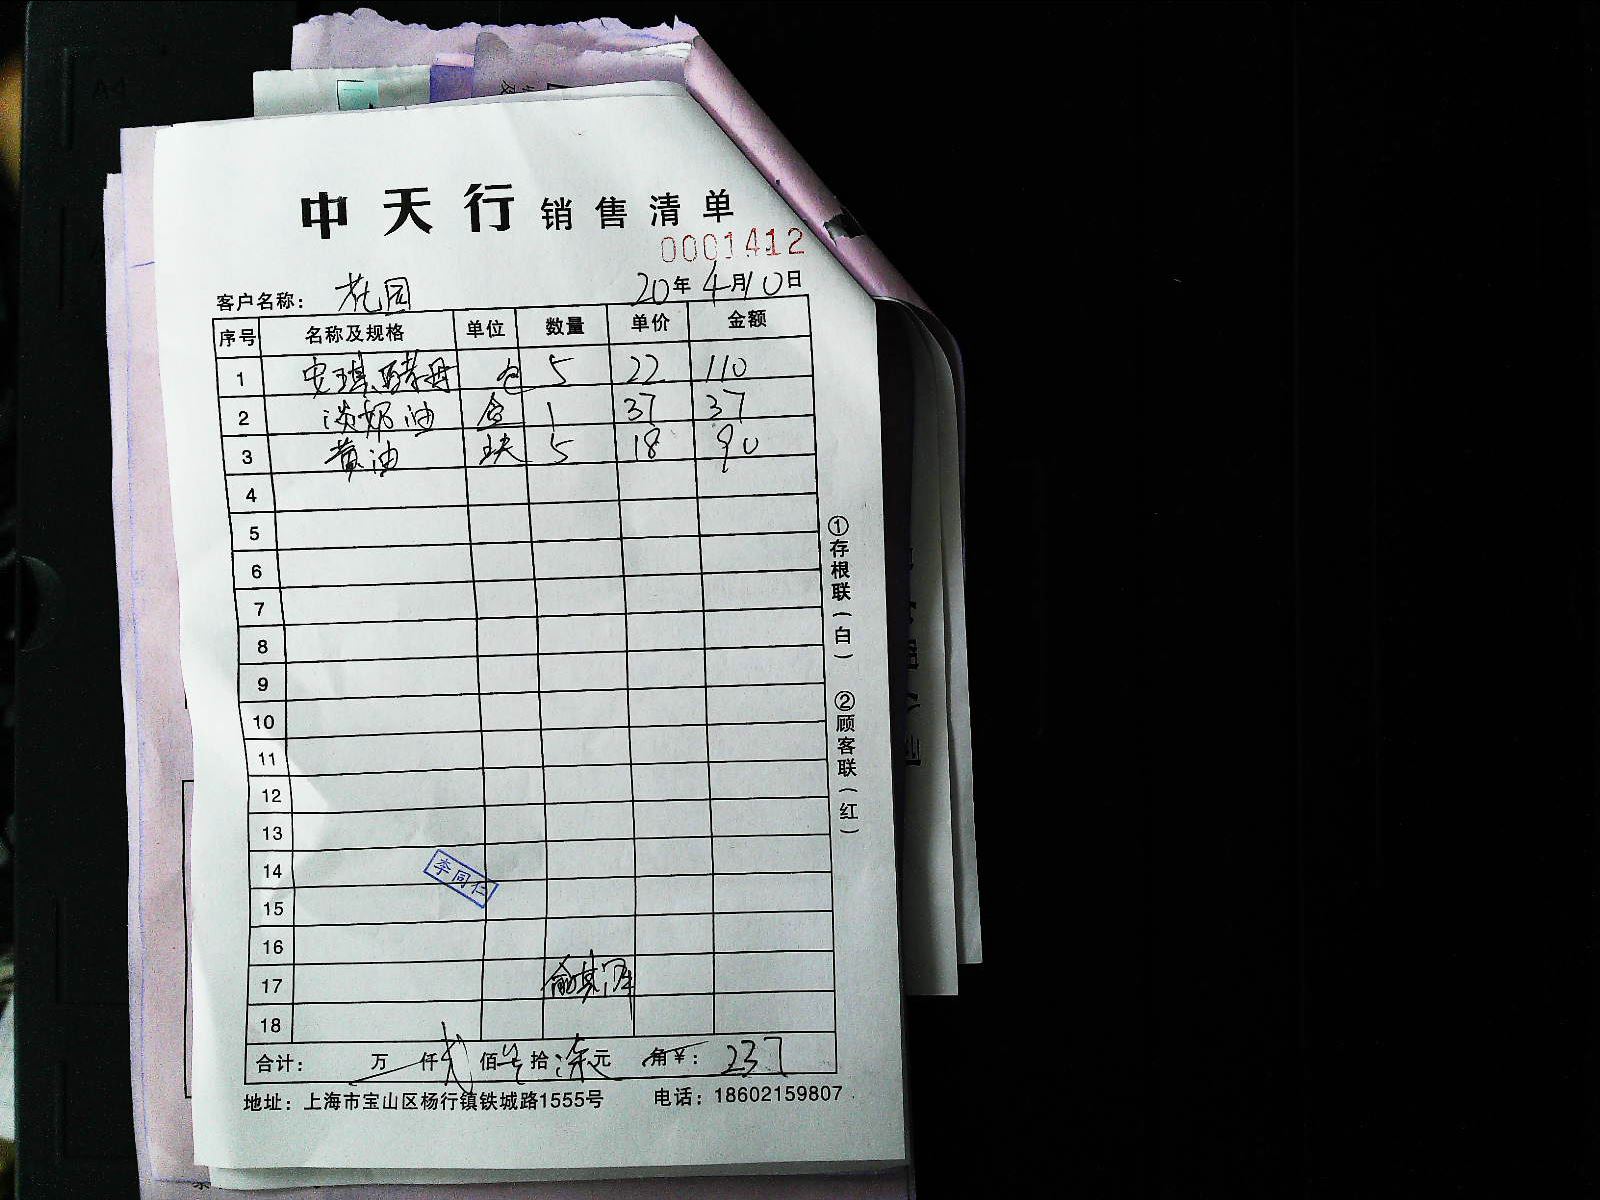 中天行 销售清单
0001412
客户名称: 花园 20年4月10日
序号 名称及规格 单位 数量 单价 金额
1 安琪酵母 包 5 22 110
2 淡奶油 盒 1 37 37
3 黄油 块 5 18 90
4
5
6
7
8
9
10
11
12
13
14
李同仁
15
16
17
18
合计: 万 仟 贰 佰 叁 拾 柒 元 角 ¥: 237
地址: 上海市宝山区杨行镇铁城路1555号 电话: 18602159807
①存根联(白) ②顾客联(红)